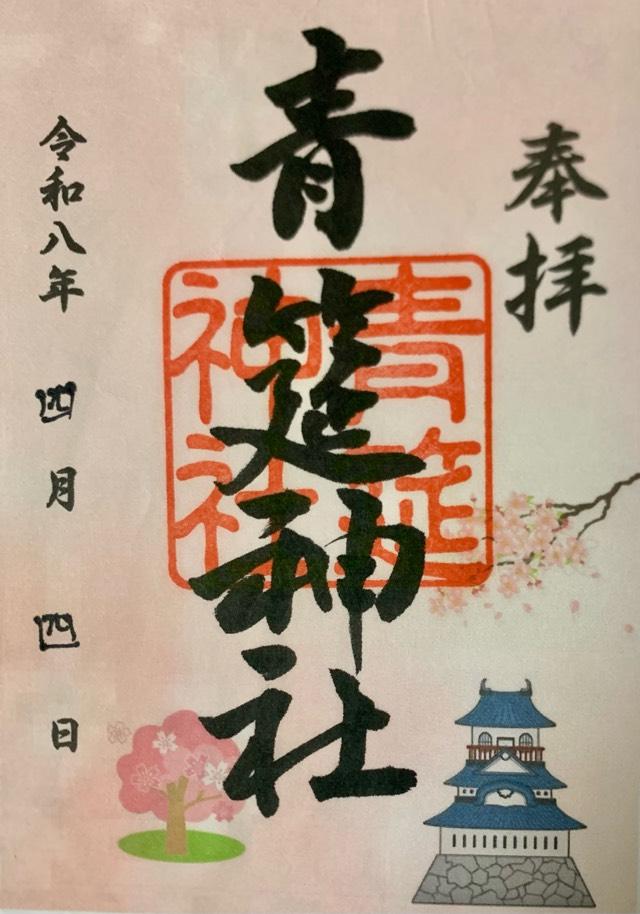 奉拝
青筵神社
青筵神社
令和八年 四月 四日